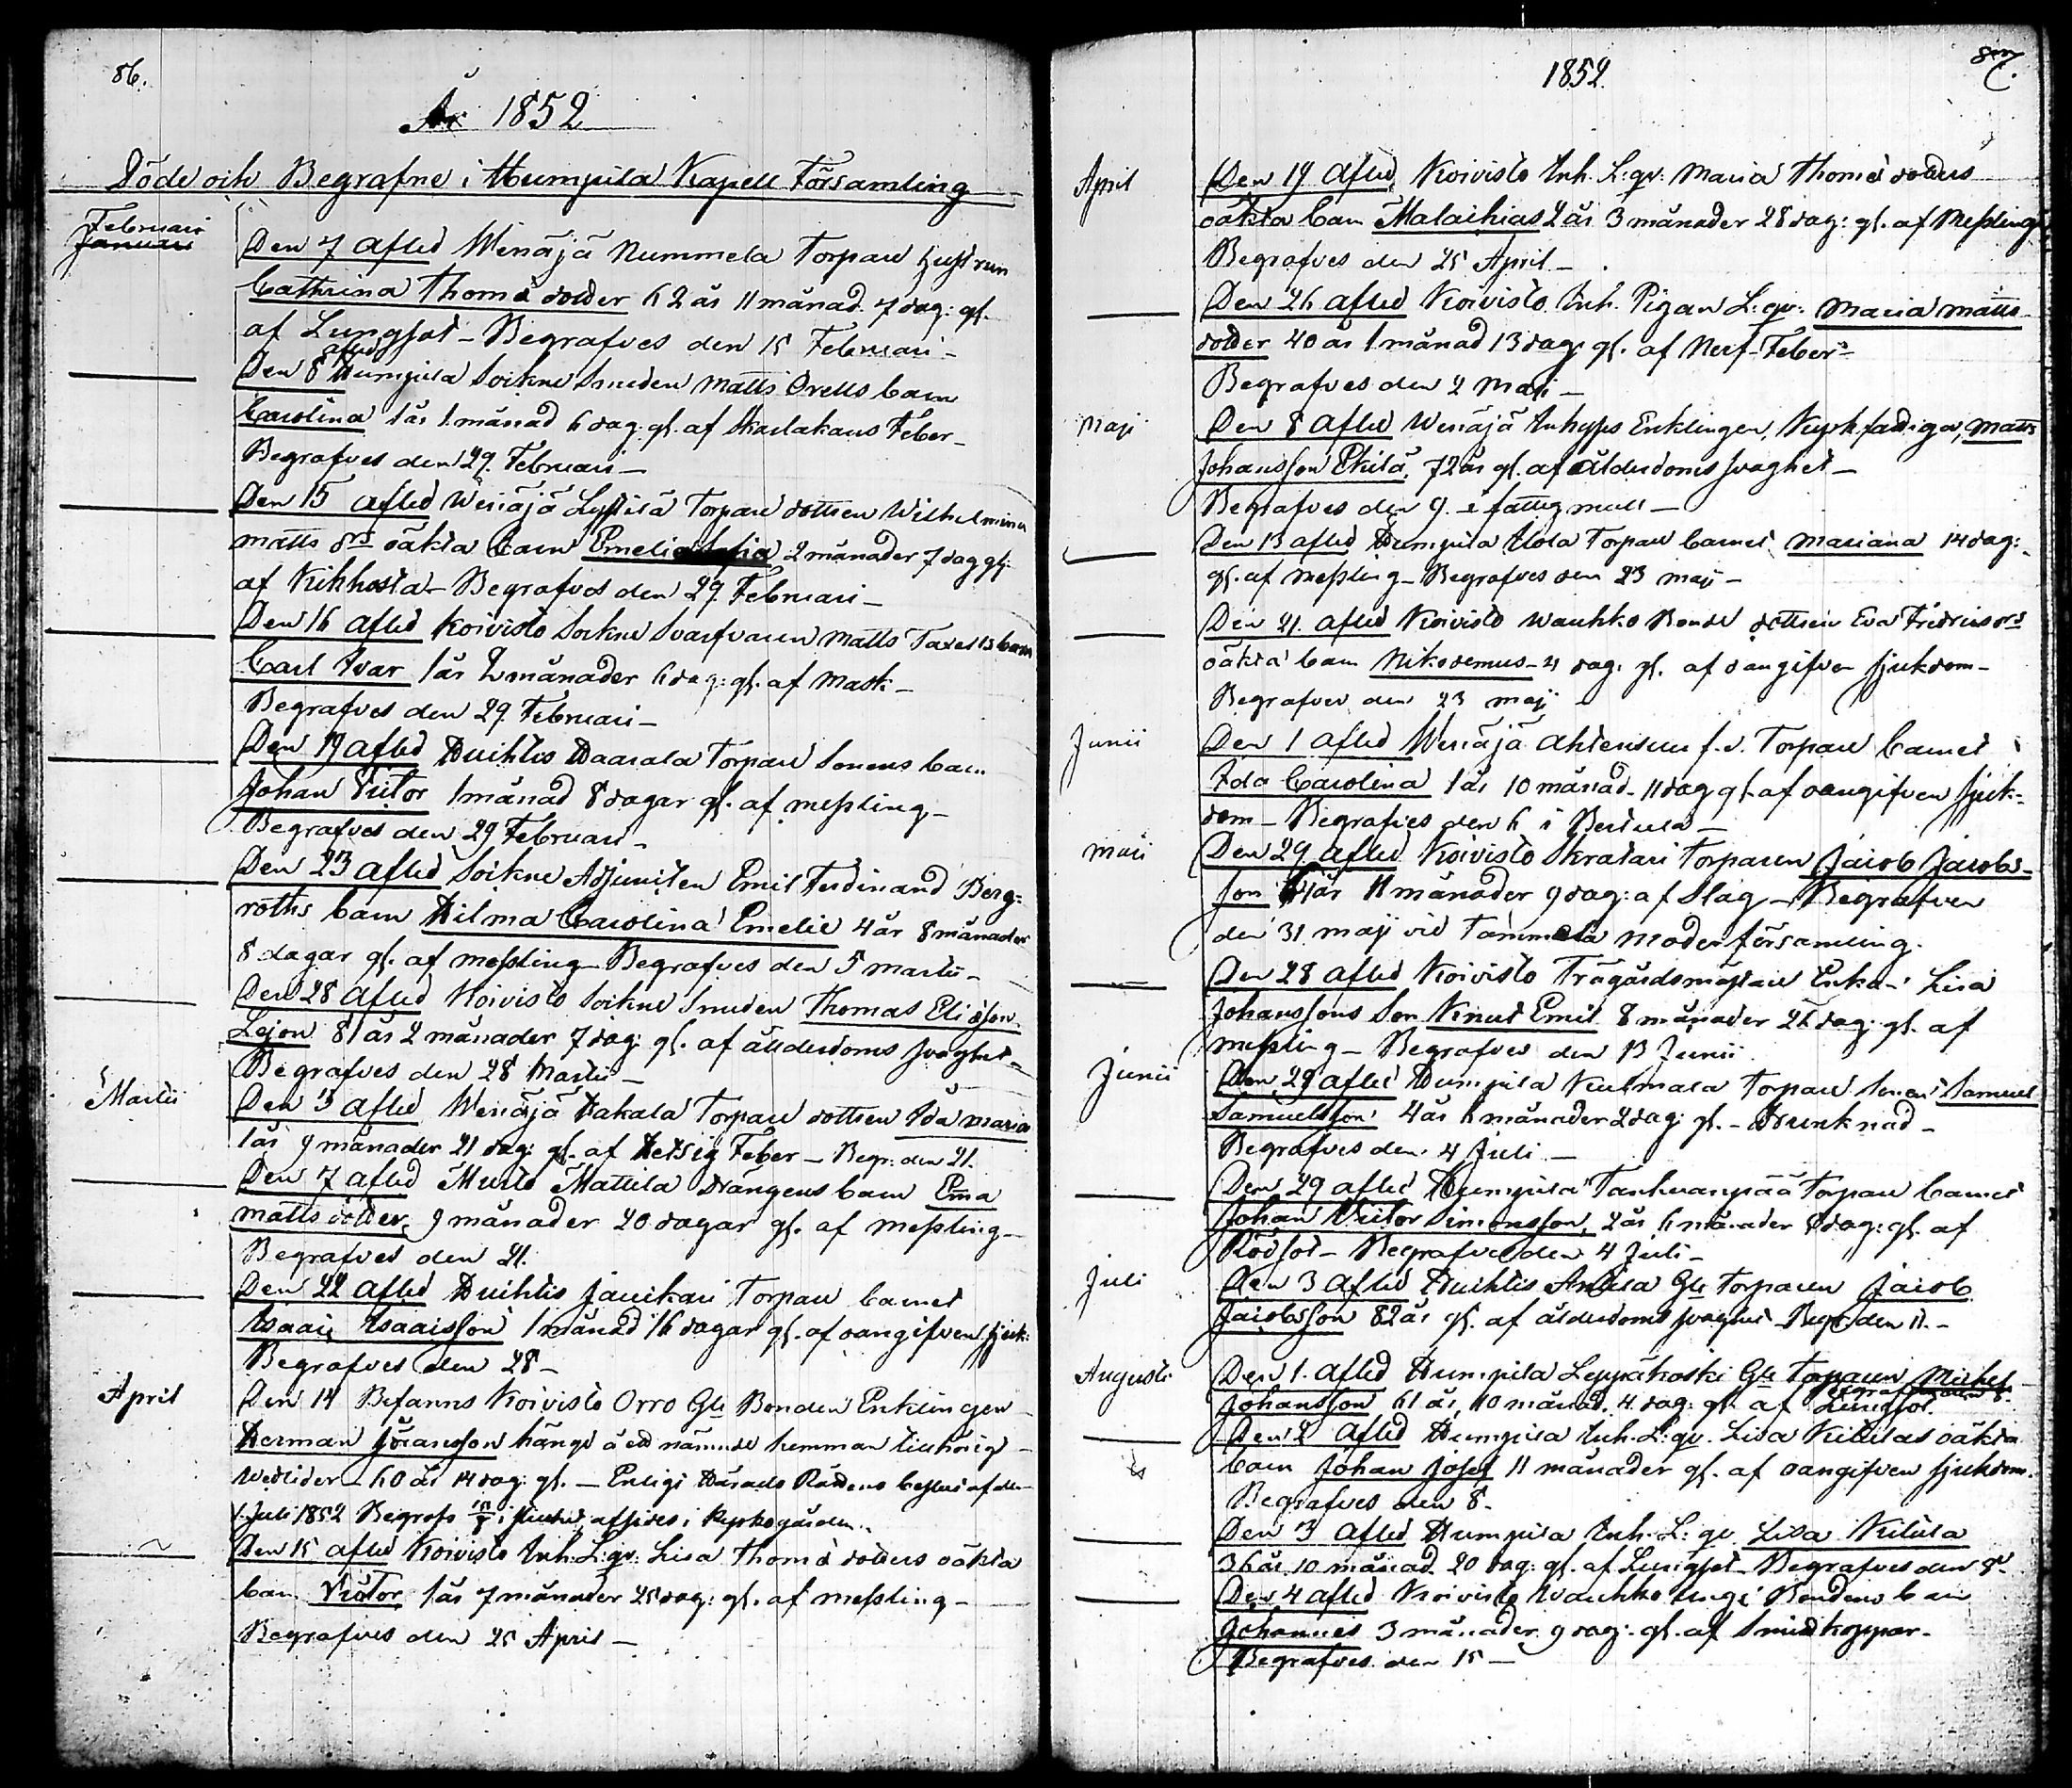 86.
År 1852
Döde och Begrafne i Humpila Kapell Församling
Februari
Januari
Den 7 afled Wenäjä Nummela Torpare Hustrun
Cathrina Thomædotter 62 år 11 månad. 7 dag: gl.
af Lungsot - Begrafves den 15 Februari -
afled
Den 8 Humpila Sockne Smeden Matts Orells barn
Carolina 1 år 1 månad 6 dag. gl. af Skarlakans Feber -
Begrafves den 29 Februari -
Den 15 afled Wenäjä Torpare dottren Wilhelmina
Matts drs oäkta barn Emelia 2 månader 7 dag gl.
af Kikhosta - Begrafves den 29 Februari -
Den 16 afled Koivisto Sockne Svarfvaren Matts barn
Carl Ivar 1 år 2 månader 6 dag: gl. af Mask -
Begrafves den 29 Februari -
Den 19 afled Huihtis Haarala Torpare Sonens barn
Johan Victor 1 månad 8 dagar gl. af messling -
Begrafves den 29 Februari -
Den 23 afled Sockne Adjuncten Emil Ferdinand Berg=
roths barn Hilma Carolina Emelie 4 år 8 månader
8 dagar gl. af messling - Begrafves den 5 martii -
Den 28 afled Koivisto Sockne Smeden Thomas Eliæson
Lejon 81 år 2 månader 7 dag: gl. af ålderdoms svaghet -
Begrafves den 28 Martii -
Martii
Den 3 afled Wenäjä Hakala Torpare dottren Ida Maria
1 år 9 månader 21 dag: gl. af Hetsig Feber - Begr: den 21.
Den 7 afled Murto Mattila Drängens barn Ema
Matts dotter, 9 månader 20 dagar gl. af messling -
Begrafves den 21.
Den 22 afled Huihtis Torpare barnet
Isaac Isaacsson 1 månad 16 dagar gl. af oangifven sjuk:
Begrafves den 28 -
April
Den 14 Befanns Koivisto Orro Gle Bonden Enklingen
Herman Jöransson hängd å ett nämnde hemman tillhörig
Wedlider - 60 år 14 dag: gl. - Enligt Härads Rättens beslut af den
1 Juli 1852 Begrofs i afsides i kyrkogården.
Den 15 afled Koivisto Inh: L:qv: Lisa Thomæ dotters oäkta
barn Victor 1 år 7 månader 25 dag: gl. af messling -
Begrafves den 25 April -
1852.
87.
April
Den 19 afled Koivisto Inh. L:qv: Maria Thomæ dotters
oäkta barn Malachias 2 år 3 månader 28 dag: gl. af Messling
Begrafves den 25 April -
Den 26 afled Koivisto Inh. Pigan L:qv: Maria Matts
dotter 40 år 1 månad 13 dag gl. af Nerf-Feber -
Begrafves den 2 Maji -
Maji
Den 8 afled Wenäjä Inhyses Enklingen, Matts
Johansson 72 år gl. af ålderdoms svaghet -
Begrafves den 9. i fattig mull -
Den 13 afled Humpila Torpare barnet Mariana 14 dag:
gl. af messling - Begrafves den 23 maji -
Den 21. afled Koivisto Wauhko Bonde dottren Eva Fredricsdrs
oäkta barn Nikodemus - 21 dag: gl. af oangifven sjukdom -
Begrafves den 23 maji
Junii
Den 1 afled Wenäjä f.d. Torpare barnet
Ida Carolina 1 år 10 månad. 11 dag gl. af oangifven sjuk=
dom - Begrafves den 6 i
Maii
Den 29 afled Koivisto Skratari Torparen Jacob Jacobs-
son år 11 månader 9 dag: af Slag - Begrafven
den 31 maji vid Tammela moderförsamling.
Den 28 afled Koivisto Trägårdsmästare Enkan Lisa
Johanssons Son Knut Emil 8 månader 26 dag: gl. af
messling - Begrafves den 13 Junii
Junii
Den 29 afled Humpila Torpare Sonen Samuel
Samuelsson 4 år 6 månader 2 dag: gl. - Drunknad -
Begrafves den 4 Juli -
Den 29 afled Humpila Tanhuanpää Torpare barnet
Johan Victor Simonsson, 2 år 6 månader 8 dag: gl. af
Rödsot - Begrafves den 4 Juli -
Juli
Den 3 afled Huihtis Anttila Gle Torparen Jacob
Jacobsson 82 år gl. af ålderdoms svaghet - Begr. den 11. -
Augusti
Den 1. afled Humpila Leppäkoski Gle Torparen Michel
Johansson 61 år, 10 månad. 4 dag: gl. af Lungsot. Begrafves den 8.
Den 2 afled Humpila Inh. L:qv. Lisa Kitulas oäkta
barn Johan Josef 11 månader gl. af oangifven sjukdom.
Begrafves den 8.
Den 3 afled Humpila Inh. L: qv Lisa Kitula
36 år 10 månad. 20 dag: gl. af Lungsot - Begrafves den 8.
Den 4 afled Koivisto Wauhko unge Bondens barn
Johannes 3 månader 9 dag: gl. af Smittkoppor.
Begrafves den 15 -